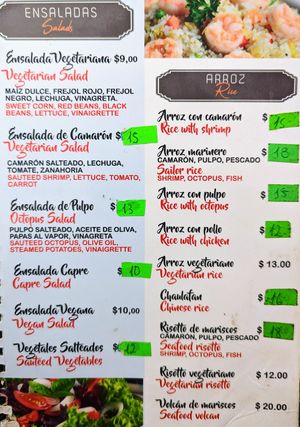 ENSALADAS
Salads
Ensalada Vegetariana $9,00
Vegetarian Salad
MAÍZ DULCE, FREJOL ROJO, FREJOL
NEGRO, LECHUGA, VINAGRETA.
SWEET CORN, RED BEANS, BLACK
BEANS, LETTUCE, VINAIGRETTE
Ensalada de Camarón $15
Vegetarian Salad
CAMARÓN SALTEADO, LECHUGA,
TOMATE, ZANAHORIA
SAUTEED SHRIMP, LETTUCE, TOMATO,
CARROT
Ensalada de Pulpo $13
Octopus Salad
PULPO SALTEADO, ACEITE DE OLIVA,
PAPAS AL VAPOR, VINAGRETA
SAUTEED OCTOPUS, OLIVE OIL,
STEAMED POTATOES, VINAIGRETTE
Ensalada Capre $10
Capre Salad
Ensalada Vegana $10,00
Vegan Salad
Vegetales Salteados $12
Sauteed Vegetables
ARROZ
Rice
Arroz con camarón $15
Rice with shrimp
Arroz marinero $18
CAMARÓN, PULPO, PESCADO
Sailor rice
SHRIMP, OCTOPUS, FISH
Arroz con pulpo $15
Rice with octopus
Arroz con pollo $12
Rice with chicken
Arroz vegetariano $13.00
Vegetarian rice
Chaulafan $16
Chinese rice
Risotto de mariscos $18
CAMARÓN, PULPO, PESCADO
Seafood risotto
SHRIMP, OCTOPUS, FISH
Risotto vegetariano $12.00
Vegetarian risotto
Volcán de mariscos $20.00
Seafood volcan